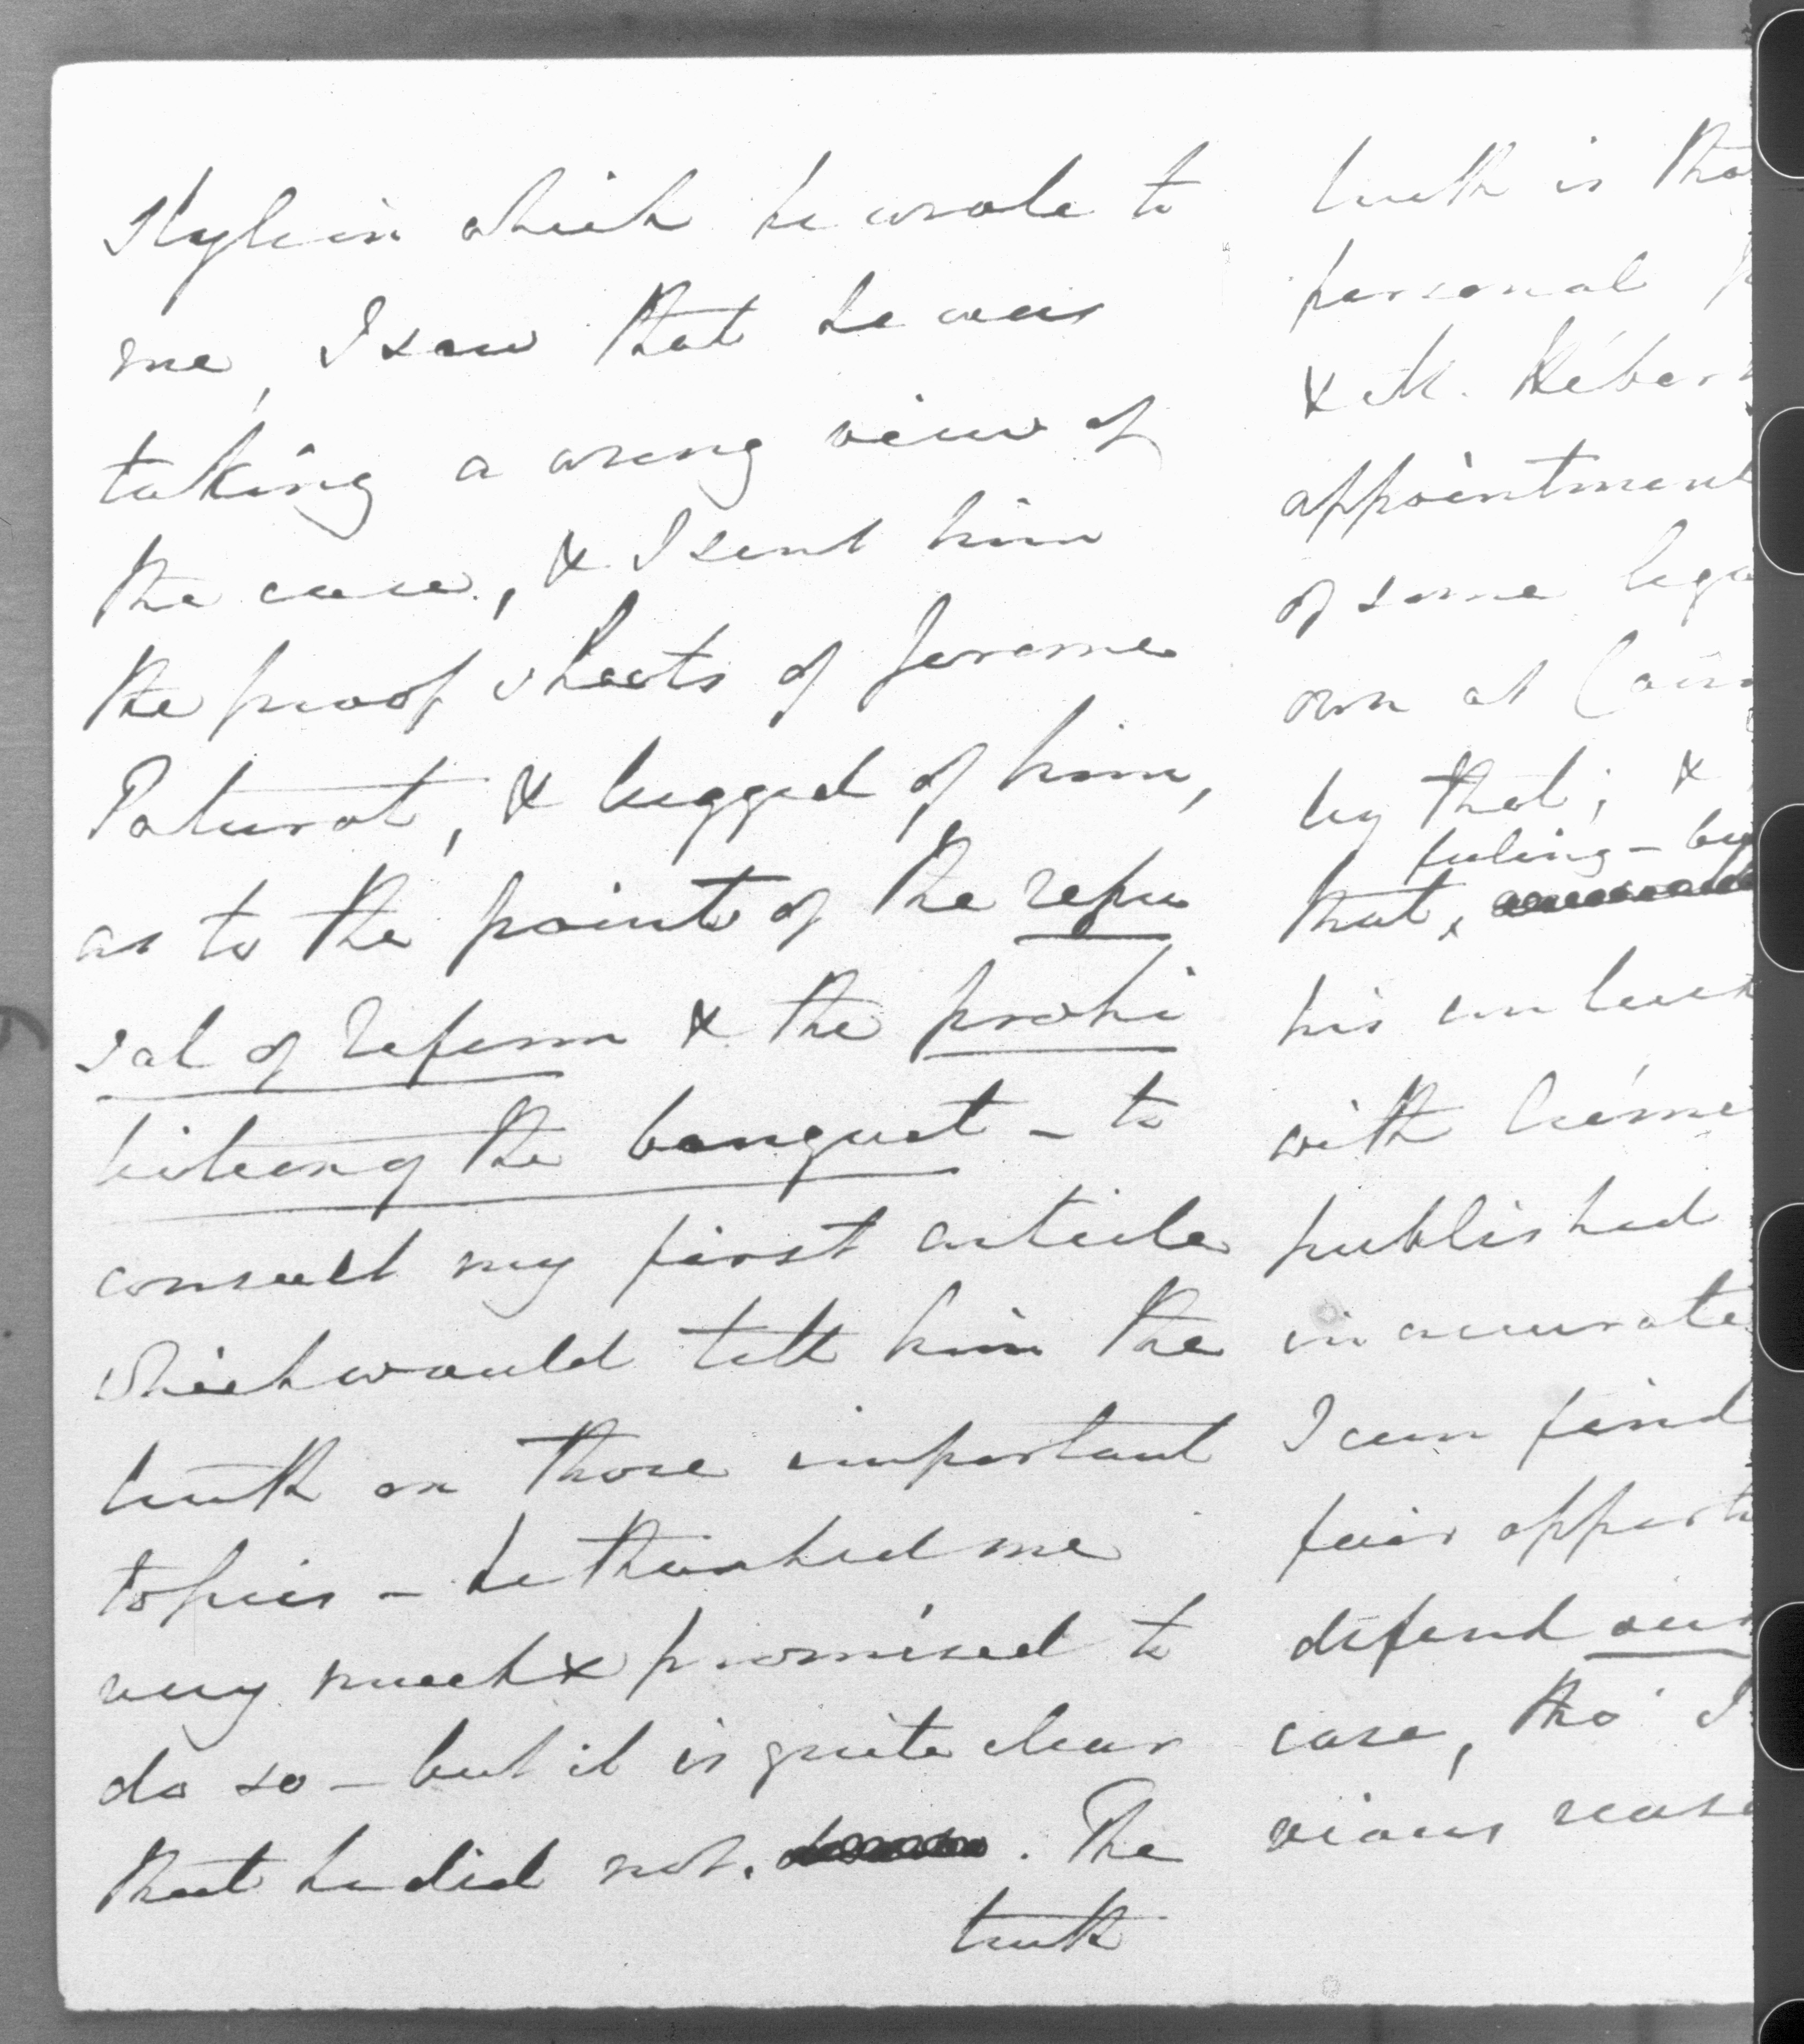 style in which he wrote to
me, I saw that he was
taking a wrong view of
the case, & I sent him
the proof sheets of Jerome
Paturot, & begged of him,
as to the points of the refu
sal of reform & the prohi
biting the banquet – to
consult my first article
which would tell him the
truth on those important
topics – he thanked me
very much & promised to
do so – but it is quite clear
that he did not. . The
truth
truth is tha
personal
& M. Héber
appointment
of some lega
own at
by that; &
feeling – bu
that,
his unluck
with Créme
published
inaccurate
I can find
fair opportu
defend our
case, tho' I
vious reaso